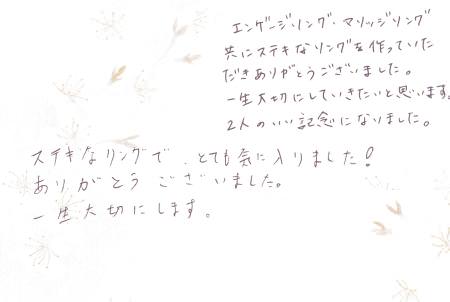 エンゲージリング・マリッジリング
共にステキなリングを作っていた
だきありがとうございました。
一生大切にしていきたいと思います。
2人のいい記念になりました。
ステキなリングで、とても気に入りました!
ありがとう ございました。
一生大切にします。